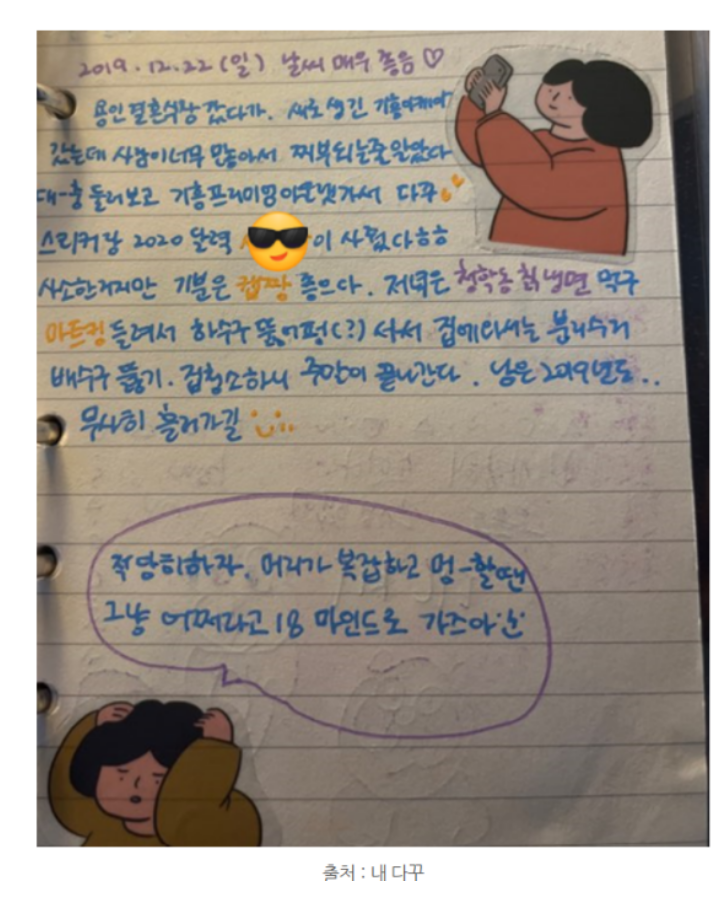 2019.12.22 (일) 날씨 매우 좋음♡
용인 결혼식장 갔다가. 새로 생긴 기흥이케아
갔는데 사람이 너무 많아서 찌부되는줄 알았다
대-충 둘러보고 기흥프리미엄아웃렛가서 다꾸
스티커랑 2020 달력 이 사줬다ㅎㅎ
사소한거지만 기분은 캡짱 좋으다. 저녁은 청학동 칡냉면 먹구
마트킹 들려서 하수구 뚫어펑(?) 사서 집에와서는 분리수거
배수구 뚫기. 집청소하니 주말이 끝나간다. 남은 2019년도..
무사히 흘러가길
적당히하자. 머리가 복잡하고 멍-할땐
그냥 어쩌라고 18 마인드로 가즈아
출처 : 내 다꾸